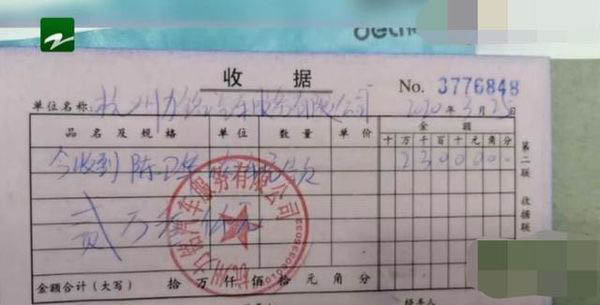 收 据
No. 3776848
单位名称: 杭州力 汽车服务有限公司 2020年3月25
品名及规格 单位 数量 单价 金额
十万千百十元角分
今收到陈卫 款 2300000
贰万叁仟元
汽车服务有限公司
金额合计(大写) 拾 万 仟 佰 拾 元 角 分
第二联 收据联